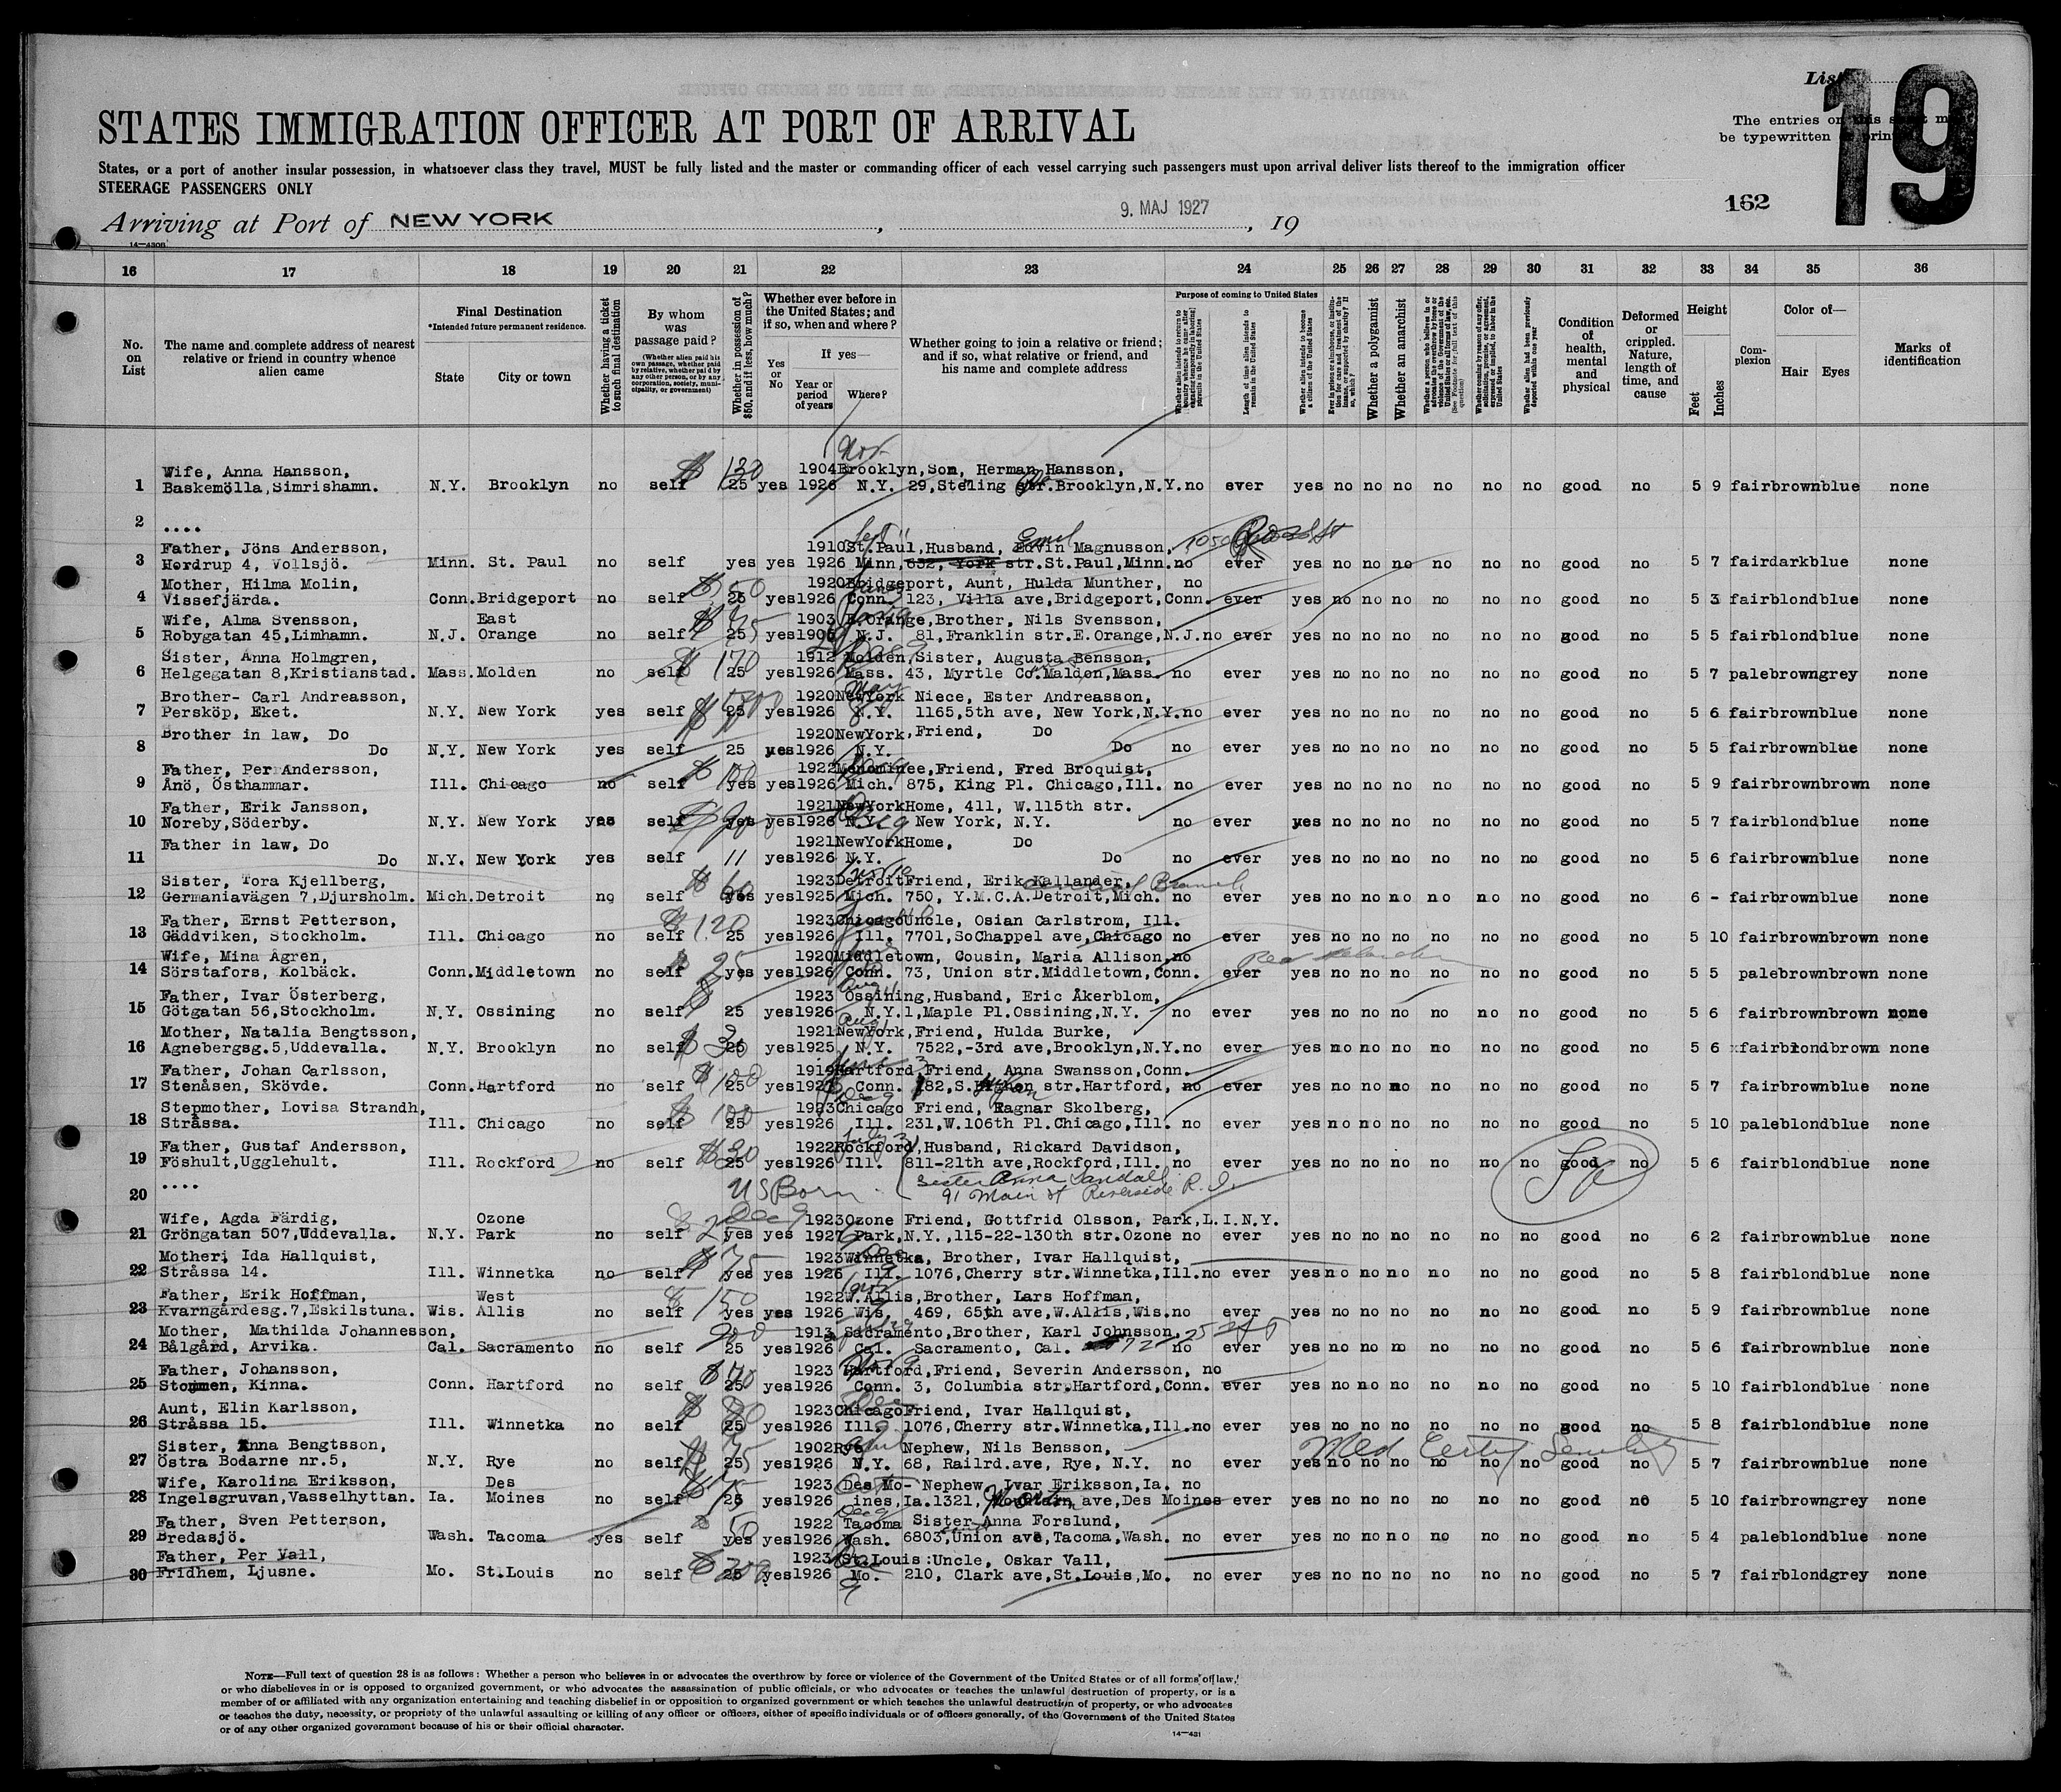 List
19
The entries on this sheet
be typewritten or printed
STATES IMMIGRATION OFFICER AT PORT OF ARRIVAL
States, or a port of another insular possession, in whatsoever class they travel, MUST be fully listed and the master or commanding officer of each vessel carrying such passengers must upon arrival deliver lists thereof to the immigration officer
STEERAGE PASSENGERS ONLY
162
Arriving at Port of NEW YORK , 9. MAJ 1927 , 19
14—430B
16 17 18 19 20 21 22 23 24 25 26 27 28 29 30 31 32 33 34 35 36
No. on List
The name and complete address of nearest relative or friend in country whence alien came
Final Destination
*Intended future permanent residence.
State
City or town
Whether having a ticket to such final destination
By whom was passage paid?
(Whether alien paid his own passage, whether paid by relative, whether paid by any other person, or by any corporation, society, municipality, or government)
Whether in possession of $50, and if less, how much?
Whether ever before in the United States; and if so, when and where?
Yes or No
If yes—
Year or period of years
Where?
Whether going to join a relative or friend; and if so, what relative or friend, and his name and complete address
Purpose of coming to United States
Length of time alien intends to remain in the United States
Whether alien intends to become a citizen of the United States
Whether a polygamist
Whether an anarchist
Whether alien had been previously deported within one year
Condition of health, mental and physical
Deformed or crippled. Nature, length of time, and cause
Height
Feet
Inches
Complexion
Color of—
Hair
Eyes
Marks of identification
Wife, Anna Hansson, 1904 Brooklyn, Son, Herman Hansson,
1 Baskemölla, Simrishamn. N.Y. Brooklyn no self 25 130 yes 1926 N.Y. 29, Steling str. Brooklyn, N.Y. no ever yes no no no no no no good no 5 9 fair brown blue none
2 ....
Father, Jöns Andersson, 1910 St. Paul, Husband, Edvin Magnusson, Emil
3 Hordrup 4, Vollsjö. Minn. St. Paul no self yes yes 1926 Minn, 632, York str. St. Paul, Minn. no ever yes no no no no no no good no 5 7 fair dark blue none
Mother, Hilma Molin, 1920 Bridgeport, Aunt, Hulda Munther, no
4 Vissefjärda. Conn. Bridgeport no self 25 $50 yes 1926 Conn. 123, Villa ave, Bridgeport, Conn. ever yes no no no no no no good no 5 3 fair blond blue none
Wife, Alma Svensson, East 1903 E. Orange, Brother, Nils Svensson,
5 Robygatan 45, Limhamn. N.J. Orange no self 25 yes 1905 N.J. 81, Franklin str. E. Orange, N.J. no ever yes no no no no no no good no 5 5 fair blond blue none
Sister, Anna Holmgren, 1912 Molden, Sister, Augusta Bensson,
6 Helgegatan 8, Kristianstad. Mass. Molden no self 25 $170 yes 1926 Mass. 43, Myrtle Co. Maldon, Mass. no ever yes no no no no no no good no 5 7 pale brown grey none
Brother- Carl Andreasson, 1920 NewYork Niece, Ester Andreasson,
7 Persköp, Eket. N.Y. New York yes self 25 yes 1926 N.Y. 1165, 5th ave, New York, N.Y. no ever yes no no no no no no good no 5 6 fair brown blue none
Brother in law, Do 1920 NewYork, Friend, Do
8 Do N.Y. New York yes self 25 yes 1926 N.Y. Do no ever yes no no no no no no good no 5 5 fair brown blue none
Father, Per Andersson, 1922 Menominee, Friend, Fred Broquist,
9 Ånö, Östhammar. Ill. Chicago no self yes $100 yes 1926 Mich. 875, King Pl. Chicago, Ill. no ever yes no no no no no no good no 5 9 fair brown brown none
Father, Erik Jansson, 1921 NewYork Home, 411, W. 115th str.
10 Noreby, Söderby. N.Y. New York yes self yes yes 1926 N.Y. New York, N.Y. no ever yes no no no no no no good no 5 7 fair blond blue none
Father in law, Do 1921 NewYork Home, Do
11 Do N.Y. New York yes self 11 yes 1926 N.Y. Do no ever yes no no no no no no good no 5 6 fair brown blue none
Sister, Tora Kjellberg, 1923 Detroit Friend, Erik Kallander, Branch
12 Germaniavägen 7, Djursholm. Mich. Detroit no self yes $60 yes 1925 Mich. 750, Y.M.C.A. Detroit, Mich. no ever yes no no no no no no good no 6 - fair brown blue none
Father, Ernst Petterson, 1923 Chicago Uncle, Osian Carlstrom, Ill.
13 Gäddviken, Stockholm. Ill. Chicago no self 25 $120 yes 1926 Ill. 7701, So Chappel ave, Chicago no ever yes no no no no no no good no 5 10 fair brown brown none
Wife, Mina Ågren, 1920 Middletown, Cousin, Maria Allison, no
14 Sörstafors, Kolbäck. Conn. Middletown no self yes $25 yes 1926 Conn. 73, Union str. Middletown, Conn. ever yes no no no no no no good no 5 5 pale brown brown none
Father, Ivar Österberg, 1923 Ossining, Husband, Eric Åkerblom,
15 Götgatan 56, Stockholm. N.Y. Ossining no self 25 yes 1926 N.Y. 1, Maple Pl. Ossining, N.Y. no ever yes no no no no no no good no 5 6 fair brown brown none
Mother, Natalia Bengtsson, 1921 NewYork, Friend, Hulda Burke,
16 Agnebergsg. 5, Uddevalla. N.Y. Brooklyn no self 25 $30 yes 1925 N.Y. 7522, -3rd ave, Brooklyn, N.Y. no ever yes no no no no no no good no 5 6 fair blond brown none
Father, Johan Carlsson, 1919 Hartford Friend, Anna Swansson, Conn.
17 Stenåsen, Skövde. Conn. Hartford no self 25 $100 yes 1927 Conn. 182, S. str. Hartford, no ever yes no no no no no no good no 5 7 fair brown blue none
Stepmother, Lovisa Strandh, 1923 Chicago Friend, Ragnar Skolberg,
18 Stråssa. Ill. Chicago no self 25 $100 yes 1926 Ill. 231, W. 106th Pl. Chicago, Ill. no ever yes no no no no no no good no 5 10 pale blond blue none
Father, Gustaf Andersson, 1922 Rockford, Husband, Rickard Davidson,
19 Föshult, Ugglehult. Ill. Rockford no self 25 $30 yes 1926 Ill. 811-21th ave, Rockford, Ill. no ever yes no no no no no no good no 5 6 fair blond blue none
20 .... US Born Sister Anna Sandall 91 Main st Riverside R.I.
Wife, Agda Färdig, Ozone Dec 9 1923 Ozone Friend, Gottfrid Olsson, Park, L.I.N.Y.
21 Gröngatan 507, Uddevalla. N.Y. Park no self yes yes 1927 Park, N.Y., 115-22-130th str. Ozone no ever yes no no no no no no good no 6 2 fair brown blue none
Mother; Ida Hallquist, 1923 Winnetka, Brother, Ivar Hallquist,
22 Stråssa 14. Ill. Winnetka no self yes $75 yes 1926 Ill. 1076, Cherry str. Winnetka, Ill. no ever yes no no no no no no good no 5 8 fair blond blue none
Father, Erik Hoffman, West 1922 W. Allis, Brother, Lars Hoffman,
23 Kvarngårdesg. 7, Eskilstuna. Wis. Allis no self yes 150 yes 1926 Wis. 469, 65th ave, W. Allis, Wis. no ever yes no no no no no no good no 5 9 fair brown blue none
Mother, Mathilda Johannesson, 1913 Sacramento, Brother, Karl Johnsson,
24 Bålgård, Arvika. Cal. Sacramento no self 25 200 yes 1926 Cal. Sacramento, Cal. no ever yes no no no no no no good no 5 6 fair brown blue none
Father, Johansson, 1923 Hartford, Friend, Severin Andersson, no
25 Stommen, Kinna. Conn. Hartford no self 25 $70 yes 1926 Conn. 3, Columbia str. Hartford, Conn. ever yes no no no no no no good no 5 10 fair blond blue none
Aunt, Elin Karlsson, 1923 Chicago Friend, Ivar Hallquist,
26 Stråssa 15. Ill. Winnetka no self 25 $80 yes 1926 Ill. 1076, Cherry str. Winnetka, Ill. no ever yes no no no no no no good no 5 8 fair blond blue none
Sister, Anna Bengtsson, 1902 Rye Nephew, Nils Bensson, Med Certif Senility
27 Östra Bodarne nr. 5, N.Y. Rye no self 25 yes 1926 N.Y. 68, Railrd. ave, Rye, N.Y. no ever yes no no no no no no good no 5 7 fair brown blue none
Wife, Karolina Eriksson, Des 1923 Des Mo- Nephew, Ivar Eriksson, Ia. no
28 Ingelsgruvan, Vasselhyttan. Ia. Moines no self 25 yes 1926 ines, Ia. 1321, ave, Des Moines ever yes no no no no no no good no 5 10 fair brown grey none
Father, Sven Petterson, 1922 Tacoma Sister Anna Forslund,
29 Bredasjö. Wash. Tacoma yes self yes 50 yes 1926 Wash. 6803, Union ave, Tacoma, Wash. no ever yes no no no no no no good no 5 4 pale blond blue none
Father, Per Vall, 1923 St. Louis: Uncle, Oskar Vall,
30 Fridhem, Ljusne. Mo. St. Louis no self 25 $200 yes 1926 Mo. 210, Clark ave, St. Louis, Mo. no ever yes no no no no no no good no 5 7 fair blond grey none
NOTE—Full text of question 28 is as follows: Whether a person who believes in or advocates the overthrow by force or violence of the Government of the United States or of all forms of law,
or who disbelieves in or is opposed to organized government, or who advocates the assassination of public officials, or who advocates or teaches the unlawful destruction of property, or is a
member of or affiliated with any organization entertaining and teaching disbelief in or opposition to organized government or which teaches the unlawful destruction of property, or who advocates
or teaches the duty, necessity, or propriety of the unlawful assaulting or killing of any officer or officers, either of specific individuals or of officers generally, of the Government of the United States
or of any other organized government because of his or their official character.
14—431